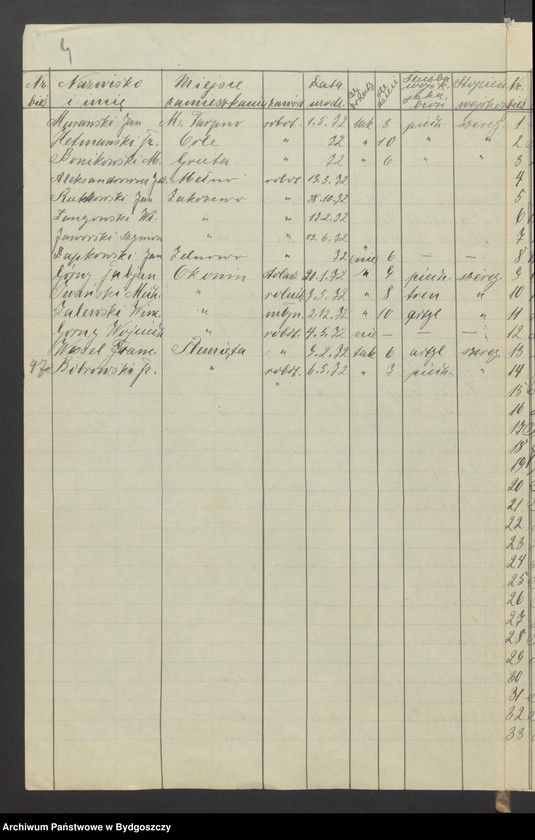 4
Nr. bież. Nazwisko i imię Miejsce zamieszkania zawód Data urodz. Służba wojsk. Stopień wojskow. Nr. bież.
Murawski Jan M. Tarpno robot. 1.5.92 tak 3 piech. szereg. 1
Hetmański Fr. Orle " 92 " 10 " " 2
Bonikowski M. Gruta " 92 " 6 " " 3
Aleksandrowicz Jan Mełno robot. 13.3.92 4
Rutkowski Jan Zakrzewo " 28.10.92 5
Langowski Wł. " " 13.2.92 6
Jaworski Szymon " " 13.6.92 7
Bajkowski Jan Zelnowo " 92 nie 6 — — 8
Górny Julian Okonin stolarz 20.1.92 " 9 piech. szereg. 9
" rolnik 9.5.92 " 8 tren " 10
Zalewski Winc. " młyn. 2.12.92 " 10 artyl. " 11
Górny Wojciech " robot. 4.3.92 nie — — — 12
Wessel Franc. Plemięta " 9.2.92 tak 6 artyl. szereg. 13
Bobrowski Fr. " robot. 6.5.92 " 3 piech. " 14
"
15
16
17
18
19
20
21
22
23
24
25
26
27
28
29
30
31
32
33
Archiwum Państwowe w Bydgoszczy